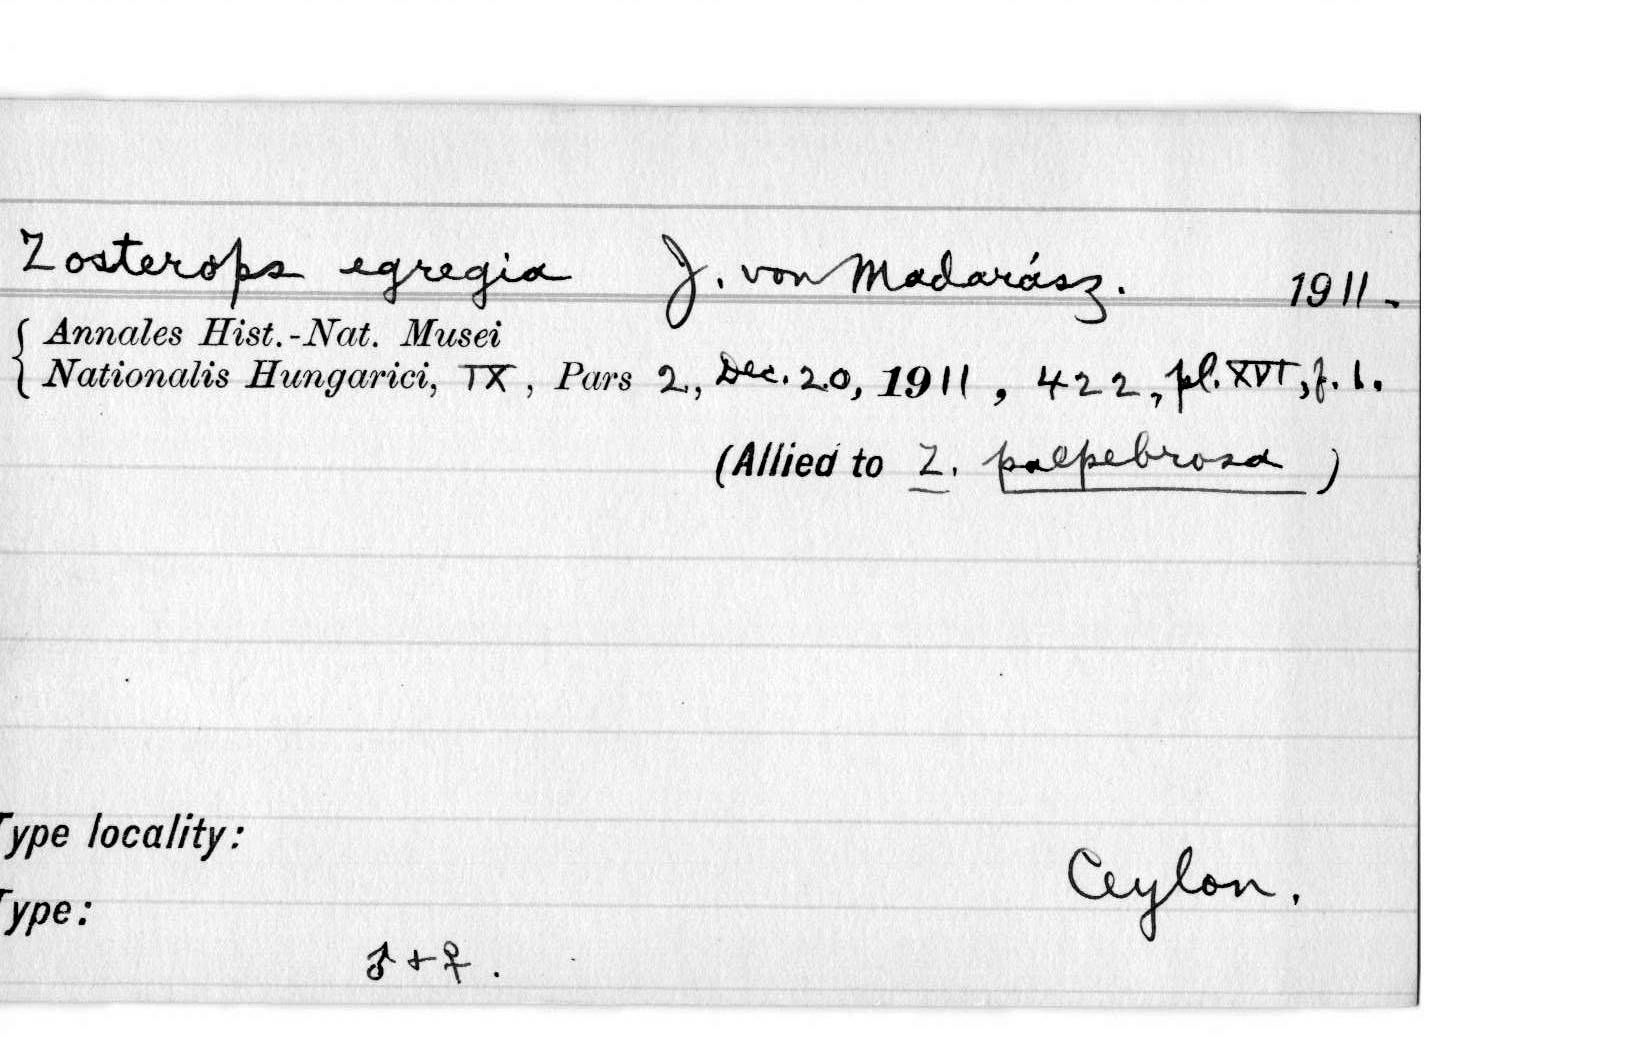 Zosterops egregia J. von Madarász. 1911.
Annales Hist.-Nat. Musei
Nationalis Hungarici, IX, Pars 2, Dec. 20, 1911, 422, pl. XVI, f. 1.
(Allied to Z. palpebrosa)
Type locality:
Ceylon.
Type:
♂ + ♀.